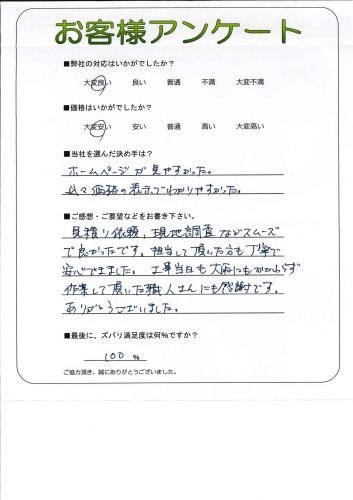 お客様アンケート
■弊社の対応はいかがでしたか？
大変良い 良い 普通 不満 大変不満
■価格はいかがでしたか？
大変安い 安い 普通 高い 大変高い
■当社を選んだ決め手は？
ホームページが見やすかった。
価格の表示でわかりやすかった。
■ご感想・ご要望などをお書き下さい。
見積り依頼、現地調査などスムーズ
で良かったです。担当して頂いた方も丁寧で
安心できました。工事当日も大雨にもかかわらず
作業して頂いた職人さんにも感謝です。
ありがとうございました。
■最後に、ズバリ満足度は何％ですか？
100 %
ご協力頂き、誠にありがとうございました。